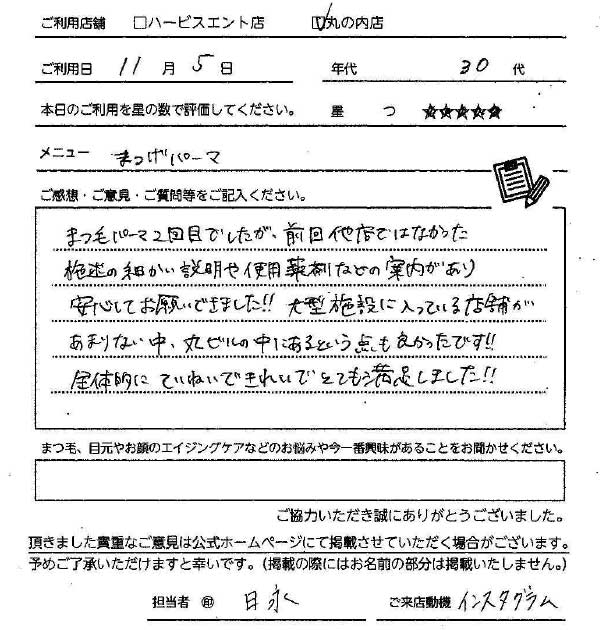 ご利用店舗 □ハービスエント店 ☑丸の内店
ご利用日 11月5日 年代 30代
本日のご利用を星の数で評価してください。 星 つ ★★★★★
メニュー まつげパーマ
ご感想・ご意見・ご質問等をご記入ください。
まつ毛パーマ2回目でしたが、前回他店ではなかった
施述の細かい説明や使用薬剤などの案内があり
安心してお願いできました!! 大型施設に入っている店舗が
あまりない中、丸ビルの中にあるという点も良かったです!!
全体的にていねいできれいでとても満足しました!!
まつ毛、目元やお顔のエイジングケアなどのお悩みや今一番興味があることをお聞かせください。
ご協力いただき誠にありがとうございました。
頂きました貴重なご意見は公式ホームページにて掲載させていただく場合がございます。
予めご了承いただけますと幸いです。(掲載の際にはお名前の部分は掲載いたしません。)
担当者 ㊞ 日永 ご来店動機 インスタグラム